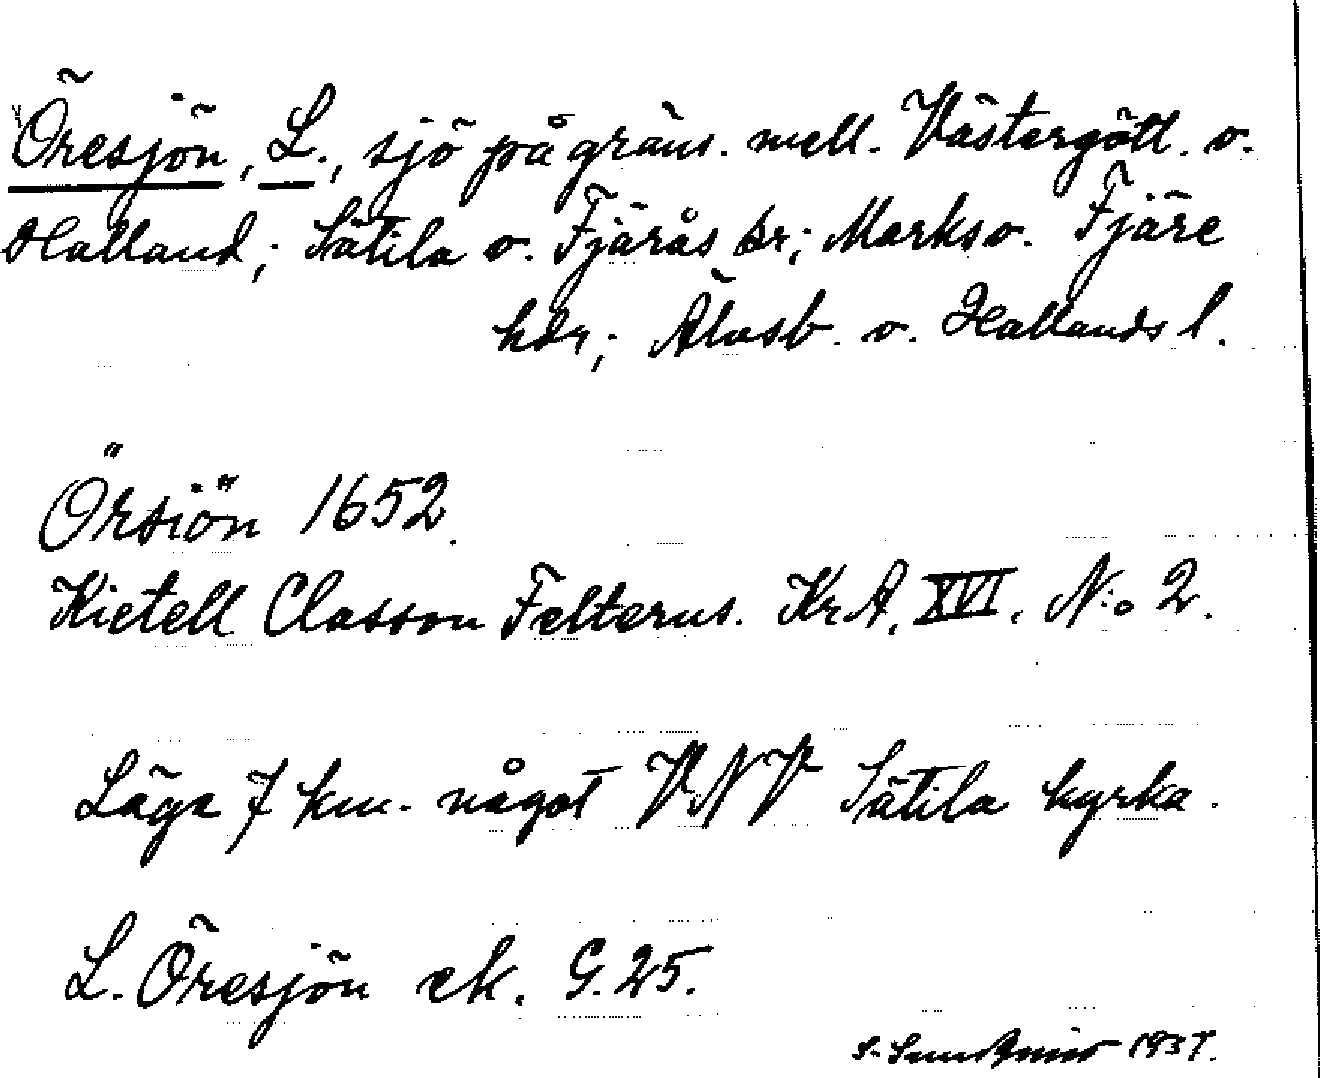 Öresjön, L., sjö på gräns. mell. Västergötl. o.
Halland; Sätila o. Fjärås sr; Marks o. Fjäre
hdr; Älvsb. o. Hallands l.
Örsiön 1652.
Kietell Classon Felterus. Kr.A. XVI. N:o 2.
Läge 7 km. något VNV Sätila kyrka.
L. Öresjön ek. G. 25.
S. 1937.